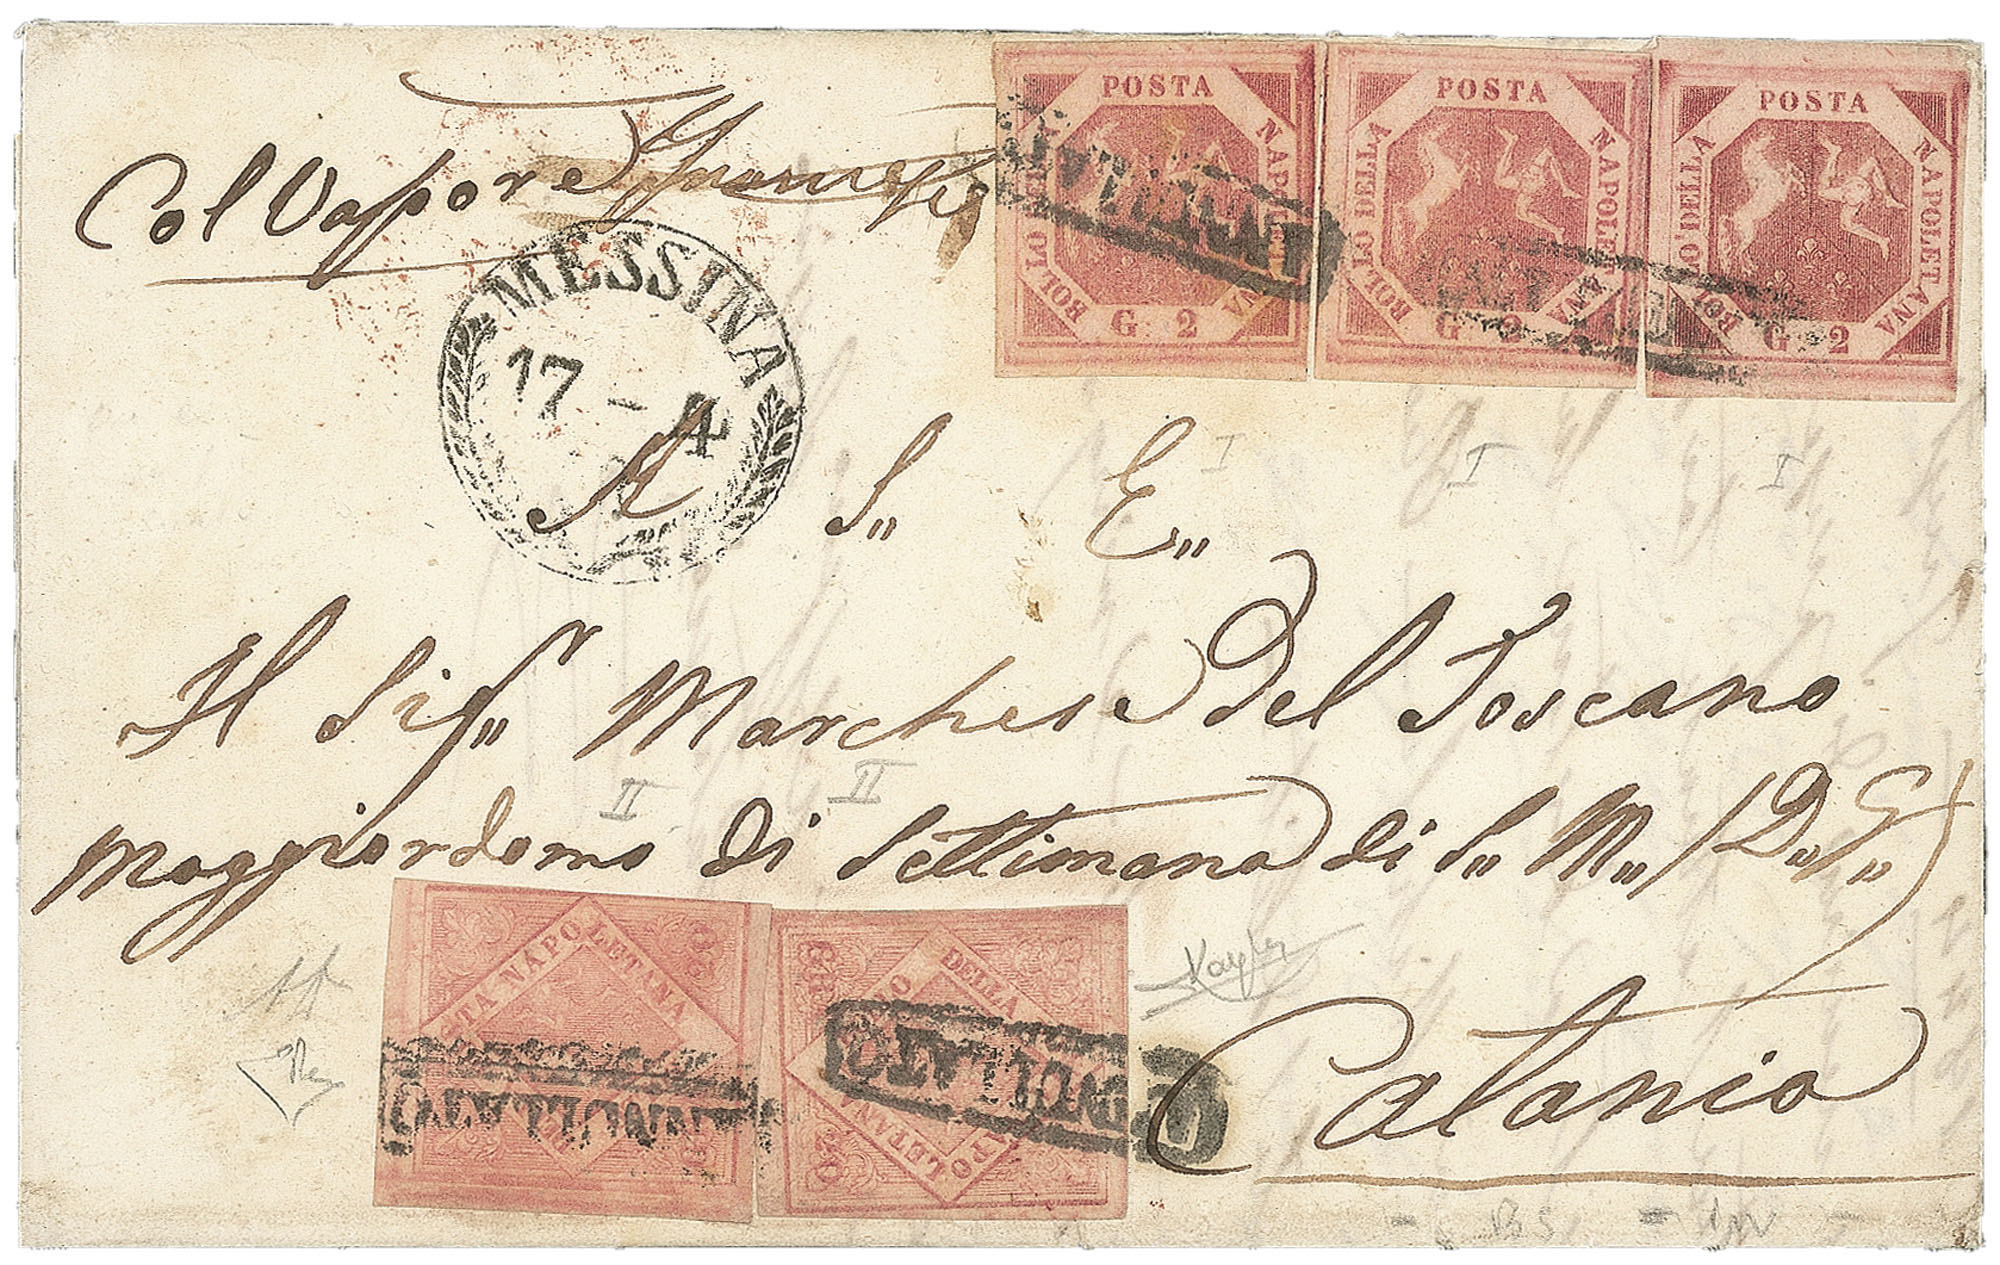 Col Vapore
POSTA NAPOLETANA BOLLO DELLA G 2
POSTA NAPOLETANA BOLLO DELLA G 2
POSTA NAPOLETANA BOLLO DELLA G 2
ANNULLATO
MESSINA
17 - 4
A S,, E,,
I I I
Il Sigr,, Marchese Del Toscano
II II
Maggiordomo di Settimana di S,, M,, (D,, G,,)
POSTA NAPOLETANA
DELLA
NAPOLETANA
ANNULLATO
ANNULLATO
Catania